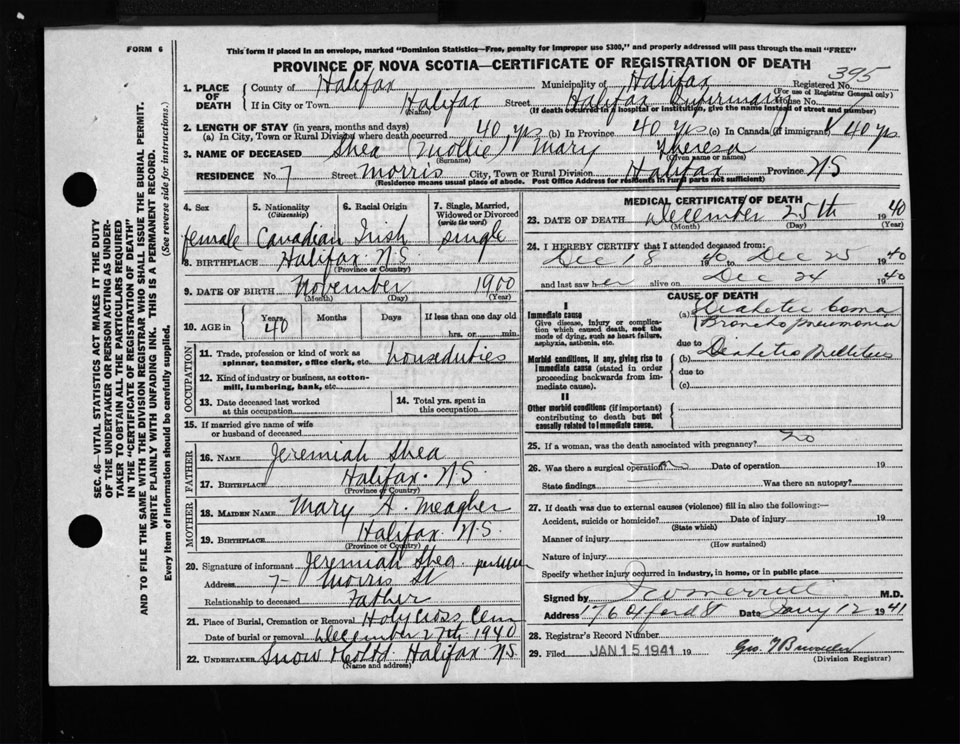 FORM 6
This form if placed in an envelope, marked "Dominion Statistics—Free, penalty for improper use $300," and properly addressed will pass through the mail "FREE"
PROVINCE OF NOVA SCOTIA—CERTIFICATE OF REGISTRATION OF DEATH
SEC. 46—VITAL STATISTICS ACT MAKES IT THE DUTY
OF THE UNDERTAKER OR PERSON ACTING AS UNDER-
TAKER TO OBTAIN ALL THE PARTICULARS REQUIRED
IN THE "CERTIFICATE OF REGISTRATION OF DEATH"
AND TO FILE THE SAME WITH THE DIVISION REGISTRAR WHO SHALL ISSUE THE BURIAL PERMIT.
WRITE PLAINLY WITH UNFADING INK. THIS IS A PERMANENT RECORD.
Every item of information should be carefully supplied. (See reverse side for instructions.)
1. PLACE OF DEATH County of Halifax Municipality of Halifax Registered No. 395
(For use of Registrar General only)
If in City or Town Halifax Street Halifax Infirmary House No.
(Name) (If death occurred in a hospital or institution, give the name instead of street and number)
2. LENGTH OF STAY (in years, months and days)
(a) In City, Town or Rural Division where death occurred 40 yrs (b) In Province 40 yrs (c) In Canada (if immigrant) 40 yrs
3. NAME OF DECEASED Shea (Mollie) Mary Theresa
(Surname) (Given name or names)
RESIDENCE No. 7 Street Morris City, Town or Rural Division Halifax Province NS
(Residence means usual place of abode. Post Office Address for residents in rural parts not sufficient)
4. Sex 5. Nationality (Citizenship) 6. Racial Origin 7. Single, Married, Widowed or Divorced (write the word)
female Canadian Irish single
8. BIRTHPLACE Halifax N.S
(Province or Country)
9. DATE OF BIRTH November 1900
(Month) (Day) (Year)
10. AGE in Years Months Days If less than one day old
40 hrs. or min.
OCCUPATION
11. Trade, profession or kind of work as spinner, teamster, office clerk, etc. houseduties
12. Kind of industry or business, as cotton-mill, lumbering, bank, etc.
13. Date deceased last worked at this occupation 14. Total yrs. spent in this occupation
15. If married give name of wife or husband of deceased
FATHER
16. NAME Jeremiah Shea
17. BIRTHPLACE Halifax N.S
(Province or Country)
MOTHER
18. MAIDEN NAME Mary A. Meagher
19. BIRTHPLACE Halifax N.S
(Province or Country)
20. Signature of informant Jeremiah Shea
Address 7- Morris St
Relationship to deceased Father
21. Place of Burial, Cremation or Removal Holy Cross Cem
Date of burial or removal December 27th 1940
22. UNDERTAKER Snow & Co Ltd Halifax NS
(Name and address)
MEDICAL CERTIFICATE OF DEATH
23. DATE OF DEATH December 25th 1940
(Month) (Day) (Year)
24. I HEREBY CERTIFY that I attended deceased from:
Dec 18 1940 to Dec 25 1940
and last saw her alive on Dec 24 1940
CAUSE OF DEATH
I
Immediate cause
Give disease, injury or complication which caused death, not the mode of dying, such as heart failure, asphyxia, asthenia, etc.
(a) Diabetic Coma
Broncho pneumonia
due to
Morbid conditions, if any, giving rise to Immediate cause (stated in order proceeding backwards from immediate cause).
(b) Diabetis Mellitus
due to
(c)
II
Other morbid conditions (if important) contributing to death but not causally related to Immediate cause.
25. If a woman, was the death associated with pregnancy? no
26. Was there a surgical operation no Date of operation 19
State findings Was there an autopsy?
27. If death due to external causes (violence) fill in also the following:—
Accident, suicide or homicide? Date of injury 19
(State which)
Manner of injury
(How sustained)
Nature of injury
Specify whether injury occurred in industry, in home, or in public place
Signed by Merrill M.D.
Address 176 Oxford St Date Jany 12 1941
28. Registrar's Record Number
29. Filed JAN 15 1941 19 Geo.
(Division Registrar)